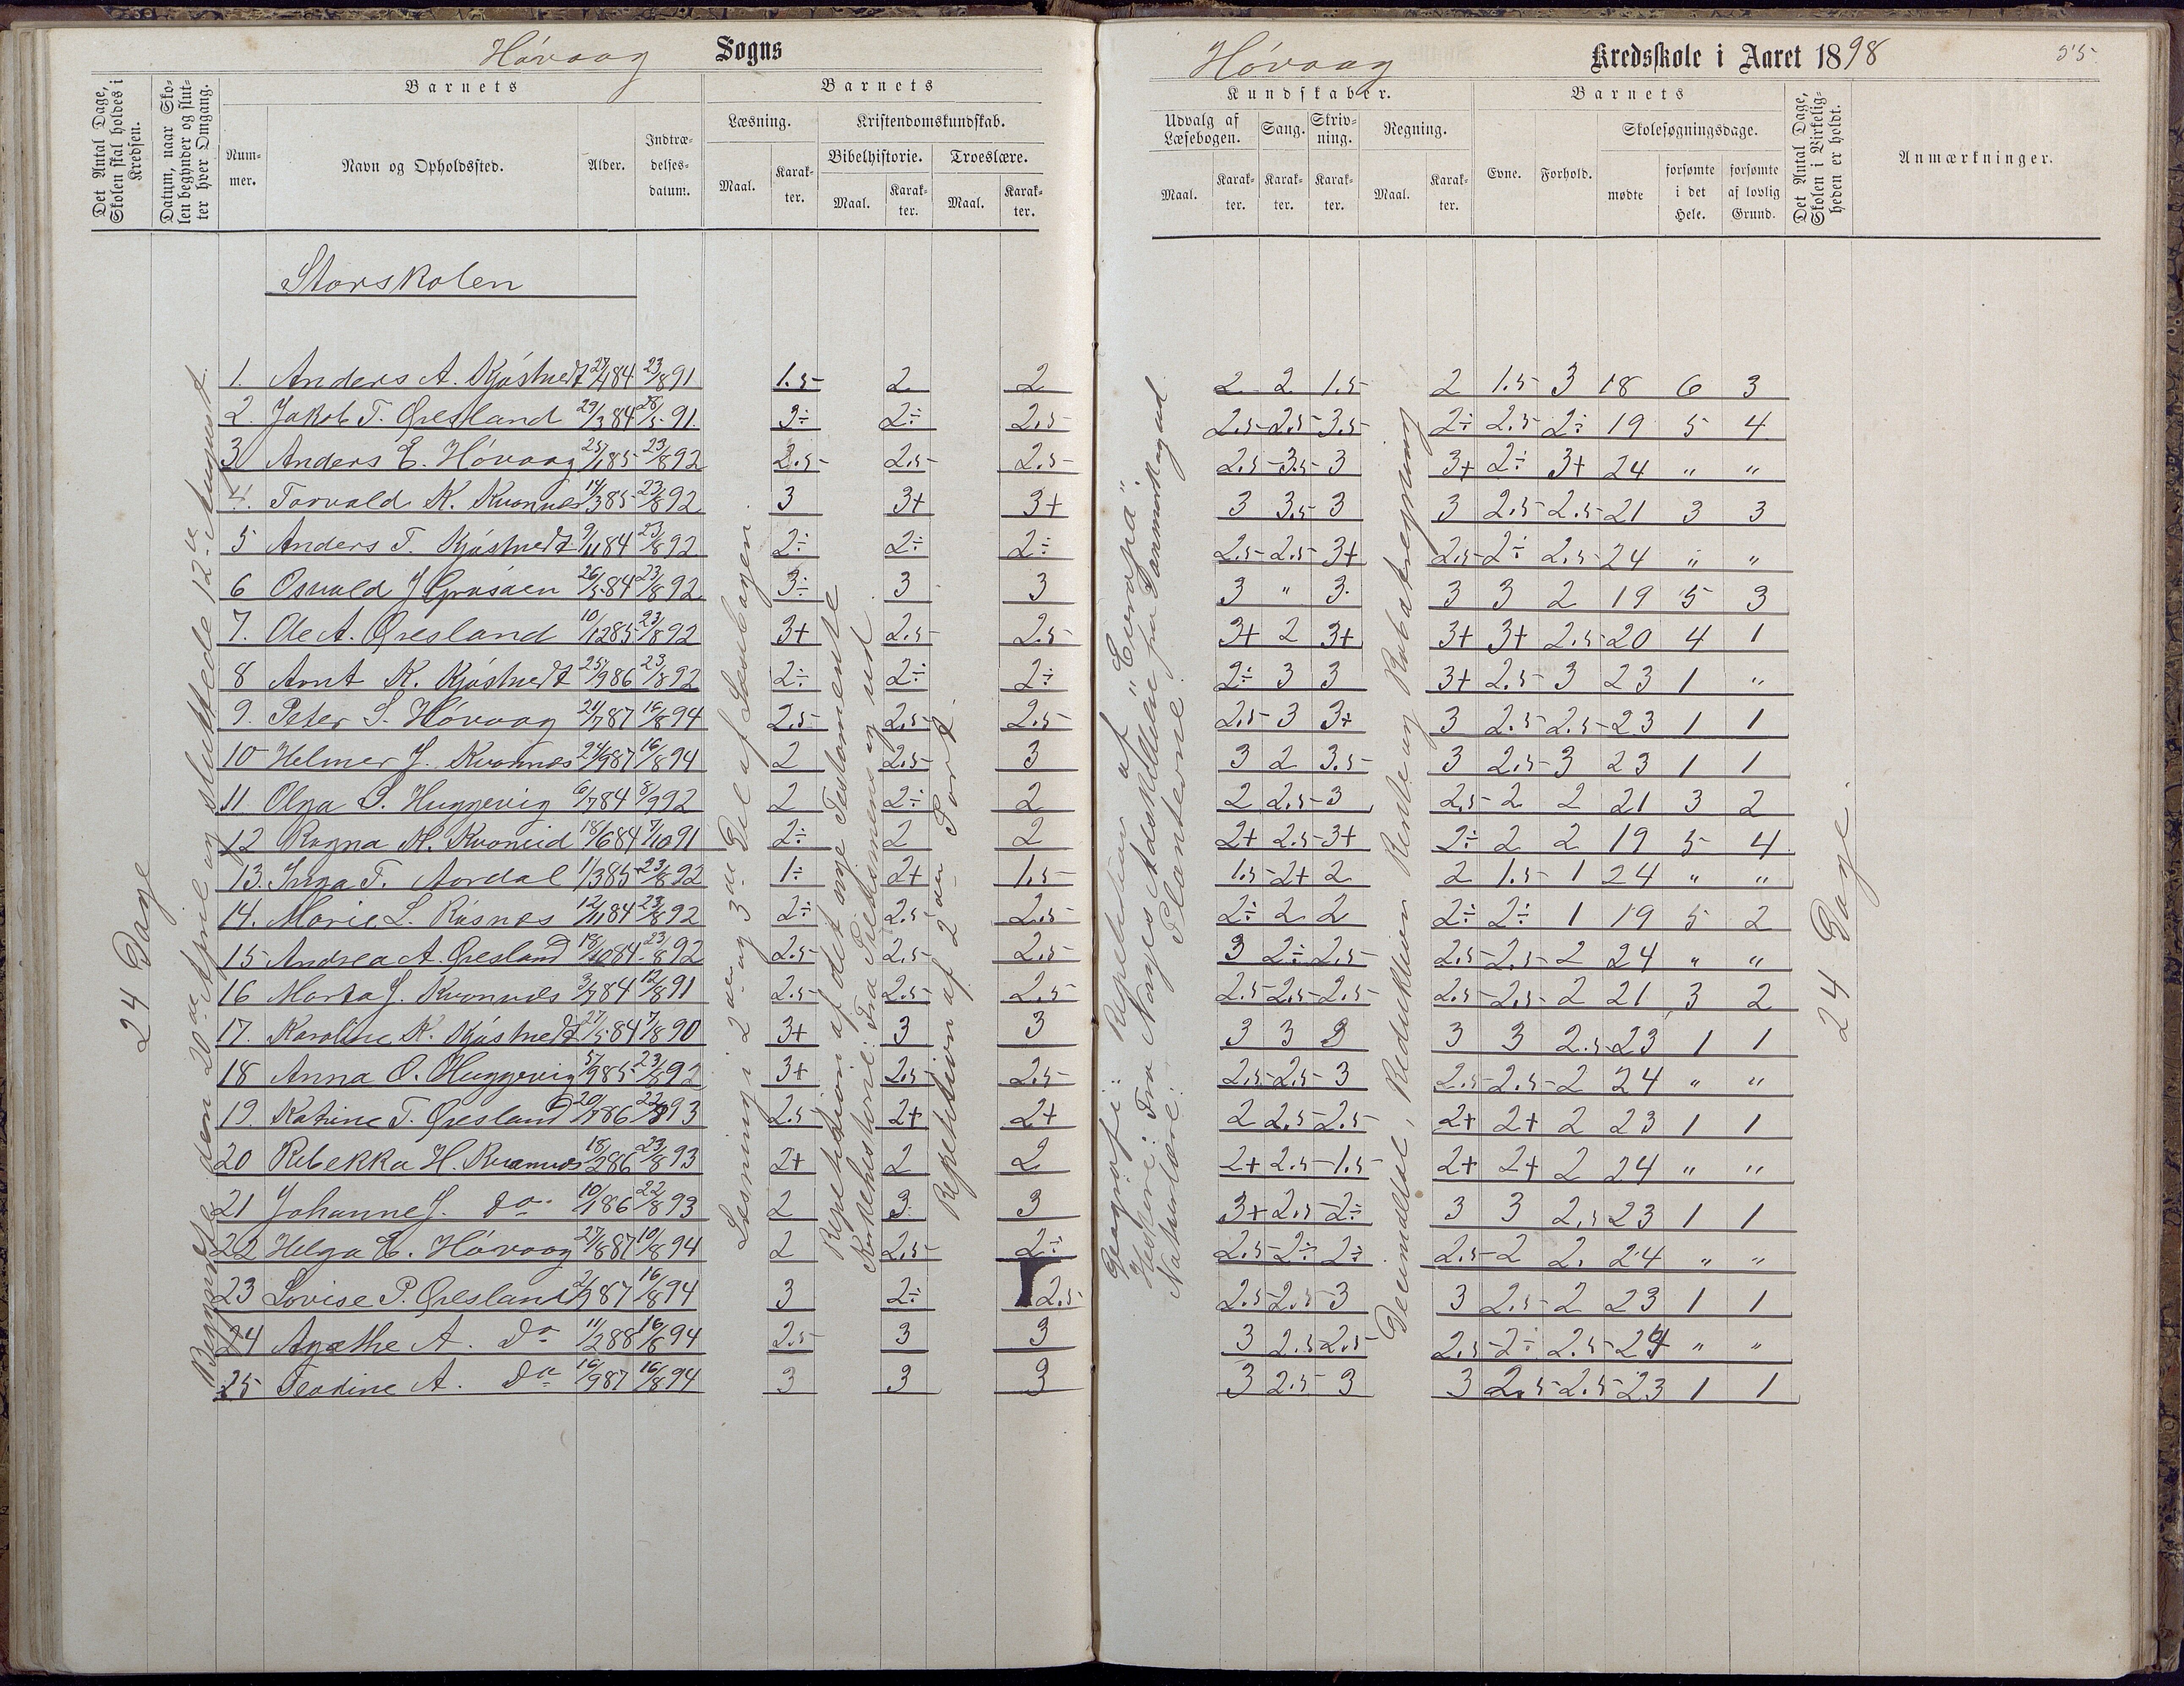 Høvaag Sogns
Det Antal Dage, Skolen skal holdes i Kredsen.
Datum, naar Skolen begynder og slutter hver Omgang.
Barnets
Nummer.
Navn og Opholdssted.
Alder.
Indtrædelsesdatum.
Barnets
Læsning.
Kristendomskundskab.
Bibelhistorie. Troeslære.
Maal. Karakter. Maal. Karakter. Maal. Karakter.
Høvaag Kredsskole i Aaret 1898 55
Kundskaber.
Udvalg af Læsebogen. Sang. Skrivning. Regning.
Maal. Karakter. Karakter. Karakter. Maal. Karakter.
Barnets
Evne. Forhold. Skolesøgningsdage.
mødte forsømte i det Hele. forsømte af lovlig Grund.
Det Antal Dage, Skolen i Virkeligheden er holdt.
Anmærkninger.
Storskolen
24 Dage
Begyndte den 20de April og sluttede 12te August.
Læsning i 2den og 3die Del af Læsebogen.
Repetition af det nye Testamente
Kirkehistorie: Fra og ud
Repetition af 2den Part.
Geografi: Repetition af "Europa".
Historie: Fra Norges Adskillelse fra Danmark og ud
Naturlære: Planterne.
Decimaltal, Reduktion Rente og Rabatregning
24 Dage.
1. Anders A. Kjøstvedt 27/4 84 23/8 91 1.5 2 2 2 2 1.5 2 1.5 3 18 6 3
2. Jakob T. Øresland 29/3 84 28/5 91. 3÷ 2÷ 2.5 2.5 2.5 3.5 2÷ 2.5 2÷ 19 5 4
3 Anders E. Høvaag 25/1 85 23/8 92 2.5 2.5 2.5 2.5 3.5 3 3+ 2÷ 3+ 24 " "
4. Torvald K. Kvannes 14/3 85 23/8 92 3 3+ 3+ 3 3.5 3 3 2.5 2.5 21 3 3
5 Anders T. Kjøstvedt 9/11 84 23/8 92 2÷ 2÷ 2÷ 2.5 2.5 3+ 2.5 2÷ 2.5 24 " "
6 Osvald J 26/5 84 23/8 92 3÷ 3 3 3 " 3. 3 3 2 19 5 3
7. Ole A. Øresland 10/12 85 23/8 92 3+ 2.5 2.5 3+ 2 3+ 3+ 3+ 2.5 20 4 1
8 Arnt K. Kjøstvedt 25/9 86 23/8 92 2÷ 2÷ 2÷ 2÷ 3 3 3+ 2.5 3 23 1 "
9. Peter S. Høvaag 24/7 87 16/8 94 2.5 2.5 2.5 2.5 3 3+ 3 2.5 2.5 23 1 1
10 Helmer J. Kvannes 24/9 87 16/8 94 2 2.5 3 3 2 3.5 3 2.5 3 23 1 1
11 Olga S. Huggevig 6/7 84 8/9 92 2 2÷ 2 2 2.5 3 2.5 2 2 21 3 2
12 Ragna N. 18/6 84 7/10 91 2÷ 2 2 2+ 2.5 3+ 2÷ 2 2 19 5 4
13. Inga T. Aardal 11/3 85 23/8 92 1÷ 2+ 1.5 1.5 2+ 2 2 1.5 1 24 " "
14. Marie L. Røsnes 12/11 84 23/8 92 2÷ 2.5 2.5 2÷ 2 2 2÷ 2÷ 1 19 5 2
15 Andrea A. Øresland 18/10 84 23/8 92 2.5 2.5 2.5 3 2÷ 2.5 2.5 2.5 2 24 " "
16 Marta J. Kvannes 3/7 84 12/8 91 2.5 2.5 2.5 2.5 2.5 2.5 2.5 2.5 2 21 3 2
17. Karoline K. Kjøstvedt 27/5 84 7/8 90 3+ 3 3 3 3 3 3 3 2.5 23 1 1
18 Anna O. Huggevig 5/9 85 23/8 92 3+ 2.5 2.5 2.5 2.5 3 2.5 2.5 2 24 " "
19. Katrine T. Øresland 20/7 86 22/8 93 2.5 2+ 2+ 2 2.5 2.5 2+ 2+ 2 23 1 1
20 Rebekka H. Kvannes 18/2 86 23/8 93 2+ 2 2 2+ 2.5 1.5 2+ 2+ 2 24 " "
21 Johanne J. do 10/1 86 22/8 93 2 3 3 3+ 2.5 2÷ 3 3 2.5 23 1 1
22 Helga E. Høvaag 27/8 87 10/8 94 2 2.5 2÷ 2.5 2÷ 2÷ 2.5 2 2. 24 " "
23 Lovise P. Øresland 2/9 87 16/8 94 3 2÷ 2.5 2.5 2.5 3 3 2.5 2 23 1 1
24 Agathe A. Do 11/2 88 16/8 94 2.5 3 3 3 2.5 2.5 2.5 2÷ 2.5 24 " "
25 Teodine A. Do 16/9 87 16/8 94 3 3 3 3 2.5 3 3 2.5 2.5 23 1 1